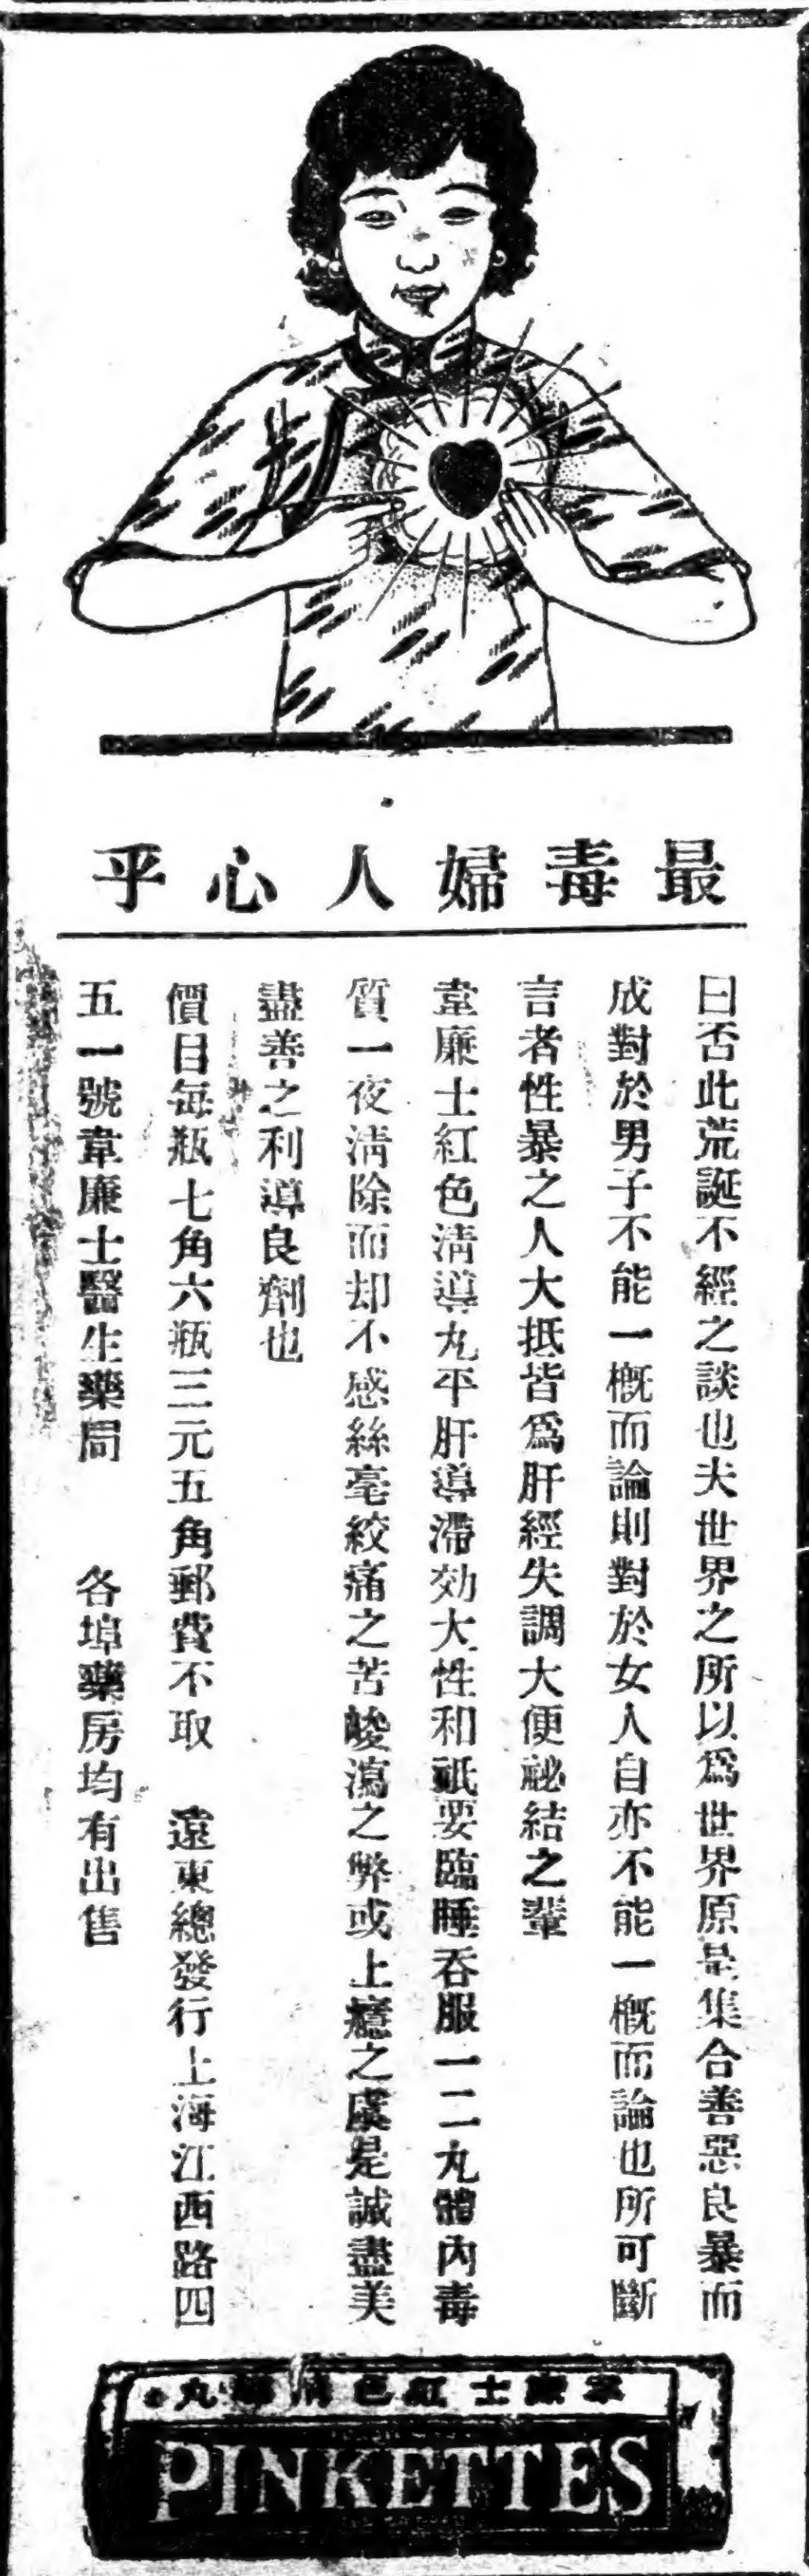 最毒婦人心乎
曰否此荒誕不經之談也夫世界之所以爲世界原是集合善惡良暴而
成對於男子不能一概而論則對於女人自亦不能一概而論也所可斷
言者性暴之人大抵皆爲肝經失調大便祕結之輩
韋廉士紅色淸導丸平肝導滯効大性和祇要臨睡吞服一二丸體內毒
質一夜淸除而却不感絲毫絞痛之苦峻瀉之弊或上癮之虞是誠盡美
盡善之利導良劑也
價目每瓶七角六瓶三元五角郵費不取 遠東總發行上海江西路四
五一號韋廉士醫生藥局 各埠藥房均有出售
韋廉士紅色淸導丸
PINKETTES